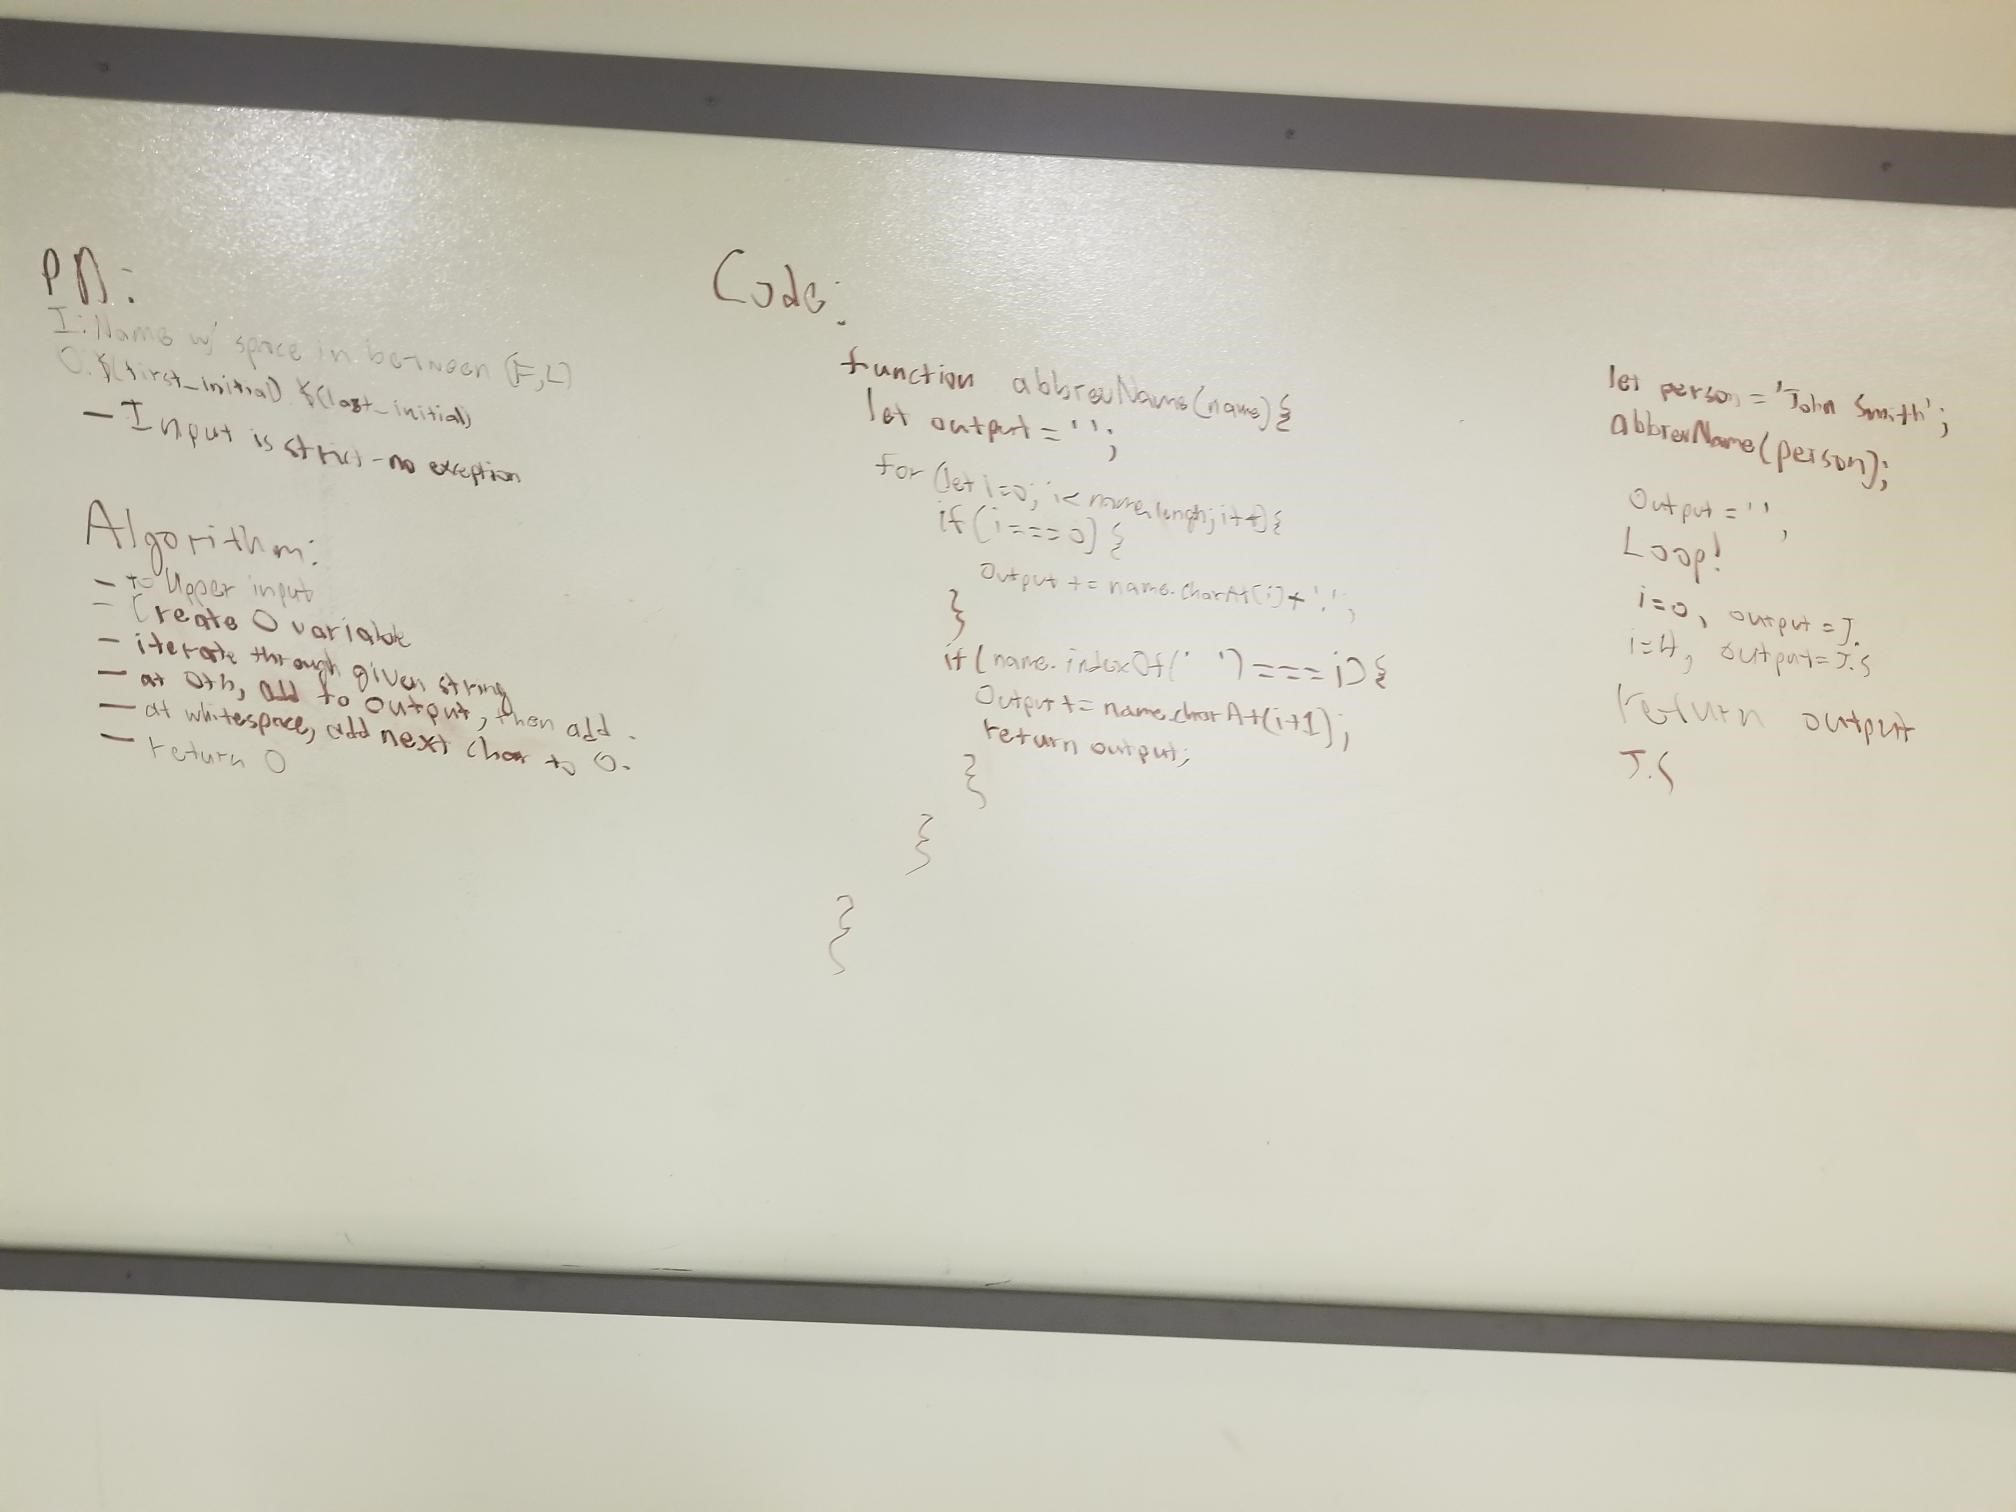 PD:
I: Name w/ space in between (F,L)
O: ${first_initial}.${last_initial}
— Input is strict - no exception
Algorithm:
— to Upper input
— Create O variable
— iterate through given string
— at 0th, add to output, then add .
— at whitespace, add next char to O.
— return O
Code:
function abbrevName(name){
let output = '';
for (let i=0; i< name.length; i++){
if (i===0) {
Output += name.charAt(i)+'.';
}
if (name.indexOf(' ') === i) {
Output += name.charAt(i+1);
return output;
}
}
}
let person = 'John Smith';
abbrevName(person);
Output = '';
Loop!
i=0, output = J.
i=4, output = J.S
return output
J.S